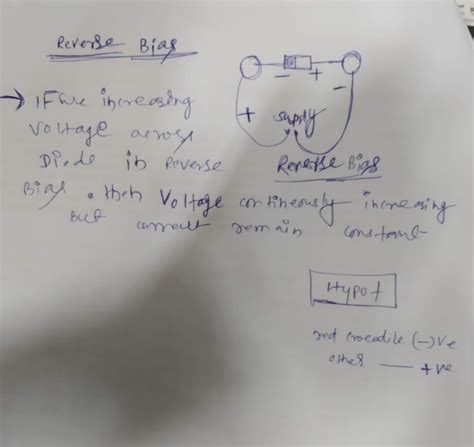 Reverse Bias
− +
+ −
supply
Reverse Bias
→ IF we increasing
voltage across
Diode in reverse
Bias. then Voltage contineously increasing
but current remain constant
Hypot
red crocodile (-)ve
other — +ve